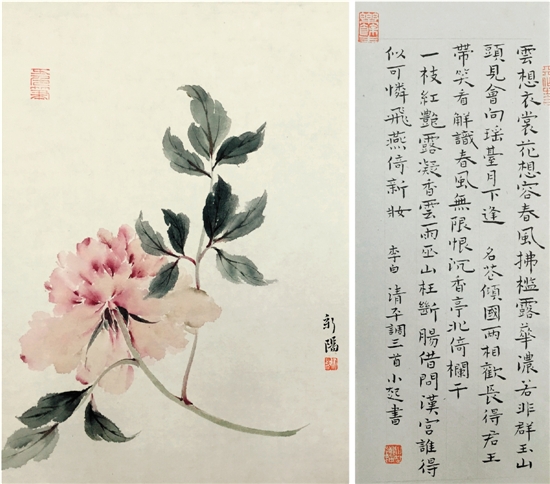 雲想衣裳花想容春風拂檻露華濃若非群玉山
頭見會向瑤臺月下逢 名花傾國兩相歡長得君王
帶笑看解識春風無限恨沉香亭北倚欄干
一枝紅艷露凝香雲雨巫山枉斷腸借問漢宮誰得
似可憐飛燕倚新妝 李白 清平調三首 小起書
新陽